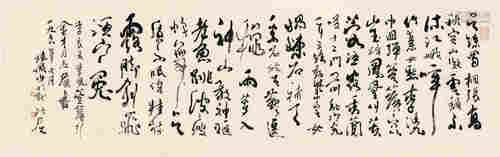 吳絲蜀桐張高
秋空山凝雲頹不
流江娥啼
竹素女愁李憑
中國彈箜篌崑
山玉碎鳳凰叫芙
蓉泣露香蘭
笑十二門前融冷光
二十三絲動紫皇女
媧煉石補天
處石破天驚
逗秋雨夢入
神山教神嫗
老魚跳波瘦
蛟舞吳質不
眠倚桂樹
露腳斜飛
濕寒兔
李長吉李憑箜篌引